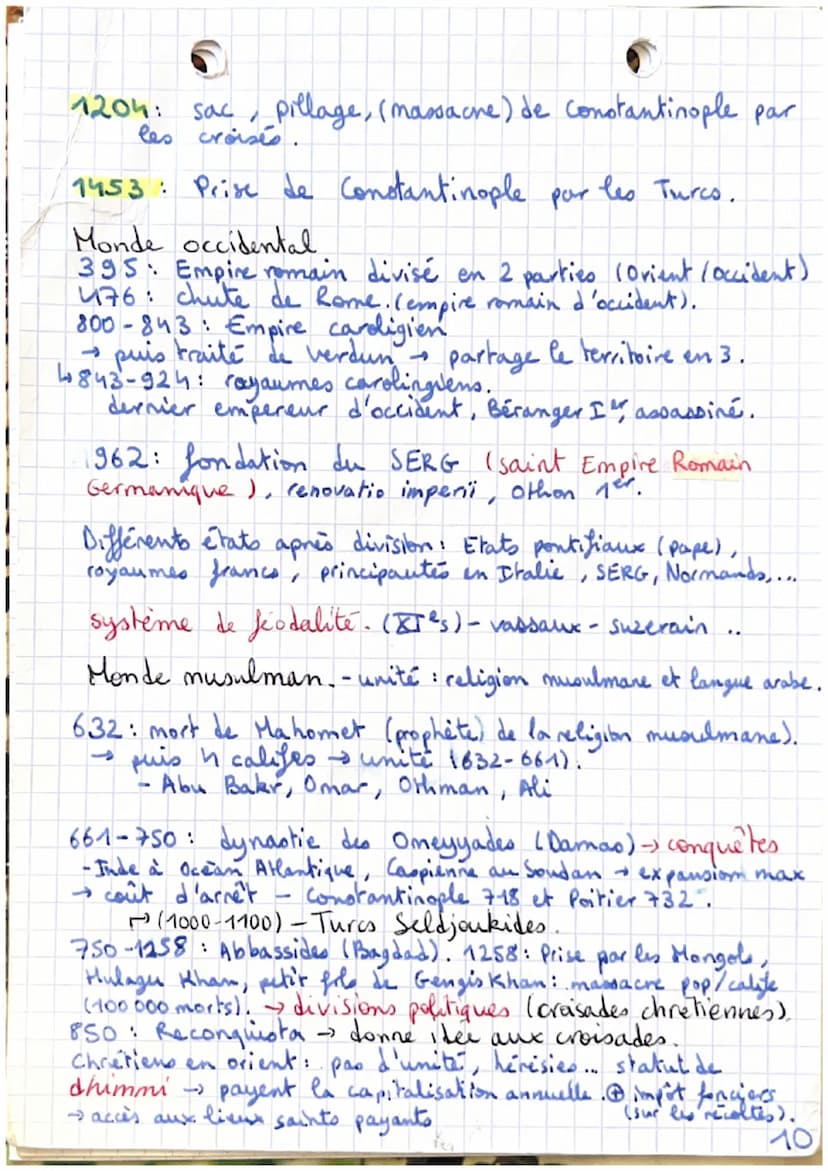 1204: sac, pillage, (massacre) de Constantinople par
les croisés.
1453: Prise de Constantinople par les Turcs.
Monde occidental
395: Empire romain divisé en 2 parties (Orient/occident)
476: chute de Rome. (empire romain d'occident).
800-843: Empire caroligien
→ puis traité de Verdun → partage le territoire en 3.
↳ 843-924: royaumes carolingiens.
dernier empereur d'occident, Béranger Ier, assassiné.
962: fondation du SERG (saint Empire Romain
Germanique), renovatio imperii, Othon 1er.
Différents états après division: Etats pontifiaux (pape),
royaumes francs, principautés en Italie, SERG, Normands,...
système de féodalité. (XIes) - vassaux - suzerain ..
Monde musulman. - unité : religion musulmane et langue arabe.
632: mort de Mahomet (prophète) de la religion musulmane).
→ puis 4 califes → unité (632-661).
- Abu Bakr, Omar, Othman, Ali
661-750: dynastie des Omeyyades (Damas) → conquêtes
- Inde à Océan Atlantique, Caspienne au Soudan → expansion max
→ coût d'arrêt - Constantinople 718 et Poitier 732.
↱ (1000-1100) - Turcs Seldjoukides.
750-1258: Abbassides (Bagdad). 1258: Prise par les Mongols,
Hulagu Kham, petit fils de Gengis Khan: massacre pop/calife
(100 000 morts). → divisions politiques (croisades chrétiennes).
850: Reconquista → donne idée aux croisades.
Chrétiens en orient: pas d'unité, hérésies... statut de
dhimmi → payent la capitalisation annuelle. ⊕ impôt fonciers
(sur les récoltes).
→ accès aux lieux saints payants
10